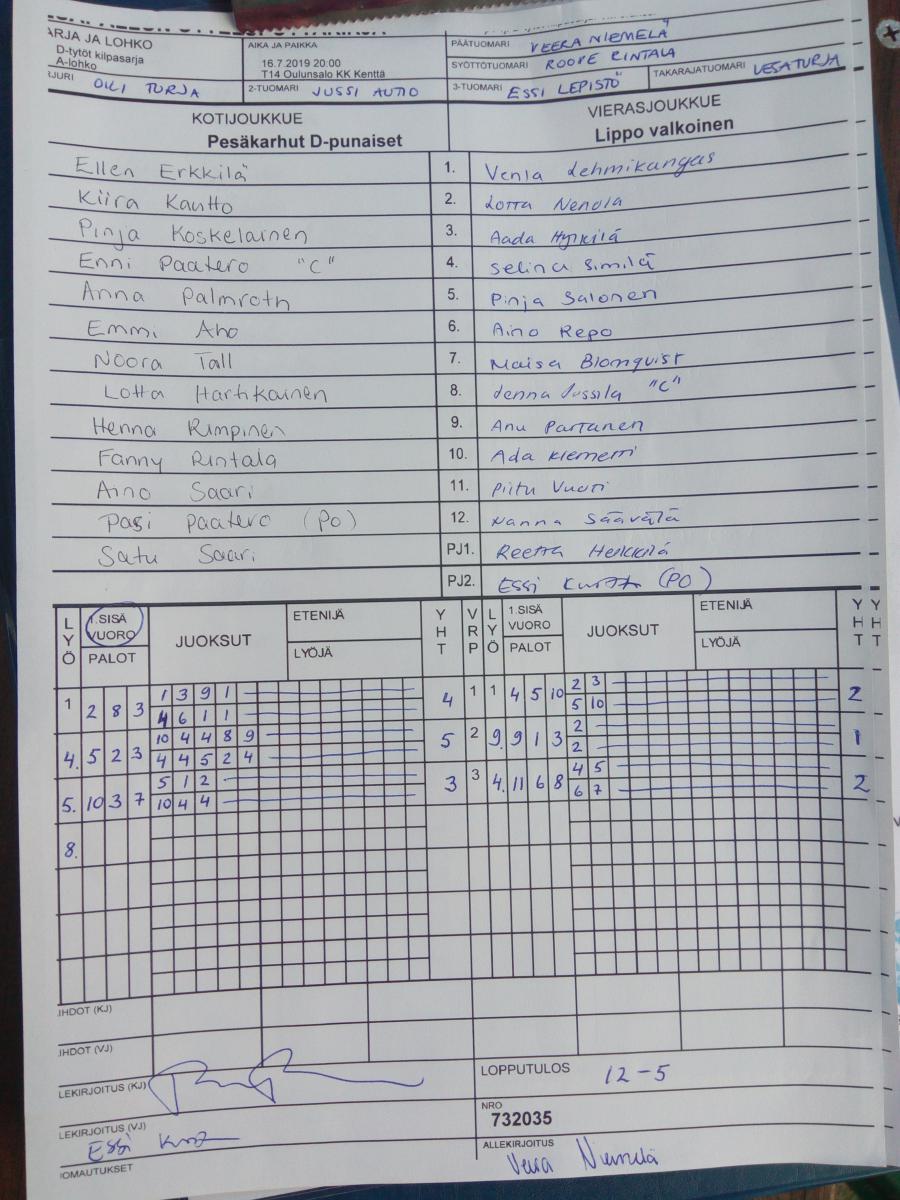 ARJA JA LOHKO
D-tytöt kilpasarja
A-lohko
AIKA JA PAIKKA
16.7.2019 20:00
T14 Oulunsalo KK Kenttä
PÄÄTUOMARI VEERA NIEMELÄ
SYÖTTÖTUOMARI ROOPE RINTALA
TAKARAJATUOMARI VESA TURJA
URI OLLI TURJA
2-TUOMARI JUSSI AUTIO
3-TUOMARI ESSI LEPISTÖ
KOTIJOUKKUE
Pesäkarhut D-punaiset
VIERASJOUKKUE
Lippo valkoinen
Ellen Erkkilä 1. Venla Lehmikangas
Kiira Kautto 2. Lotta Nenola
Pinja Koskelainen 3. Aada Hyrkilä
Enni Paatero "C" 4. Selina Similä
Anna Palmroth 5. Pinja Salonen
Emmi Aho 6. Aino Repo
Noora Tall 7. Maisa Blomqvist
Lotta Hartikainen 8. Jenna Jussila "C"
Henna Rimpinen 9. Anu Partanen
Fanny Rintala 10. Ada Klemetti
Aino Saari 11. Piitu Vuoti
Pasi Paatero (PO) 12. Nanna Säävälä
Satu Saari PJ1. Reetta Heikkilä
PJ2. Essi (PO)
LYÖ 1.SISÄ VUORO PALOT JUOKSUT ETENIJÄ LYÖJÄ YHT VRP LYÖ 1.SISÄ VUORO PALOT JUOKSUT ETENIJÄ LYÖJÄ YHT YHT
1 2 8 3 1 3 9 1 4 1 1 4 5 10 2 3 2
4 6 1 1 5 10
4. 5 2 3 10 4 4 8 9 5 2 9. 9 1 3 2 1
4 4 5 2 4 2
5. 10 3 7 5 1 2 3 3 4. 11 6 8 4 5 2
10 4 4 6 7
8.
IHDOT (KJ)
IHDOT (VJ)
LEKIRJOITUS (KJ)
LOPPUTULOS 12-5
NRO
732035
LEKIRJOITUS (VJ)
Essi
ALLEKIRJOITUS
Veera Niemelä
OMAUTUKSET